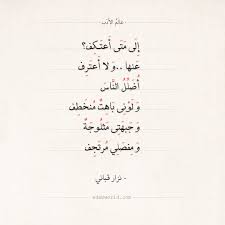 عالم الأدب
إِلى مَتَى أَعتَكِف؟
عَنها ..وَ لا أَعتَرِف
أُضَلِّلُ النَّاسَ
وَ لَوْنِي بَاهِتٌ مُنخَطِف
وَ جَبهَتِي مَثلُوجَةٌ
وَ مِفصَلِي مُرتَجِف
- نزار قباني -
adabworld.com